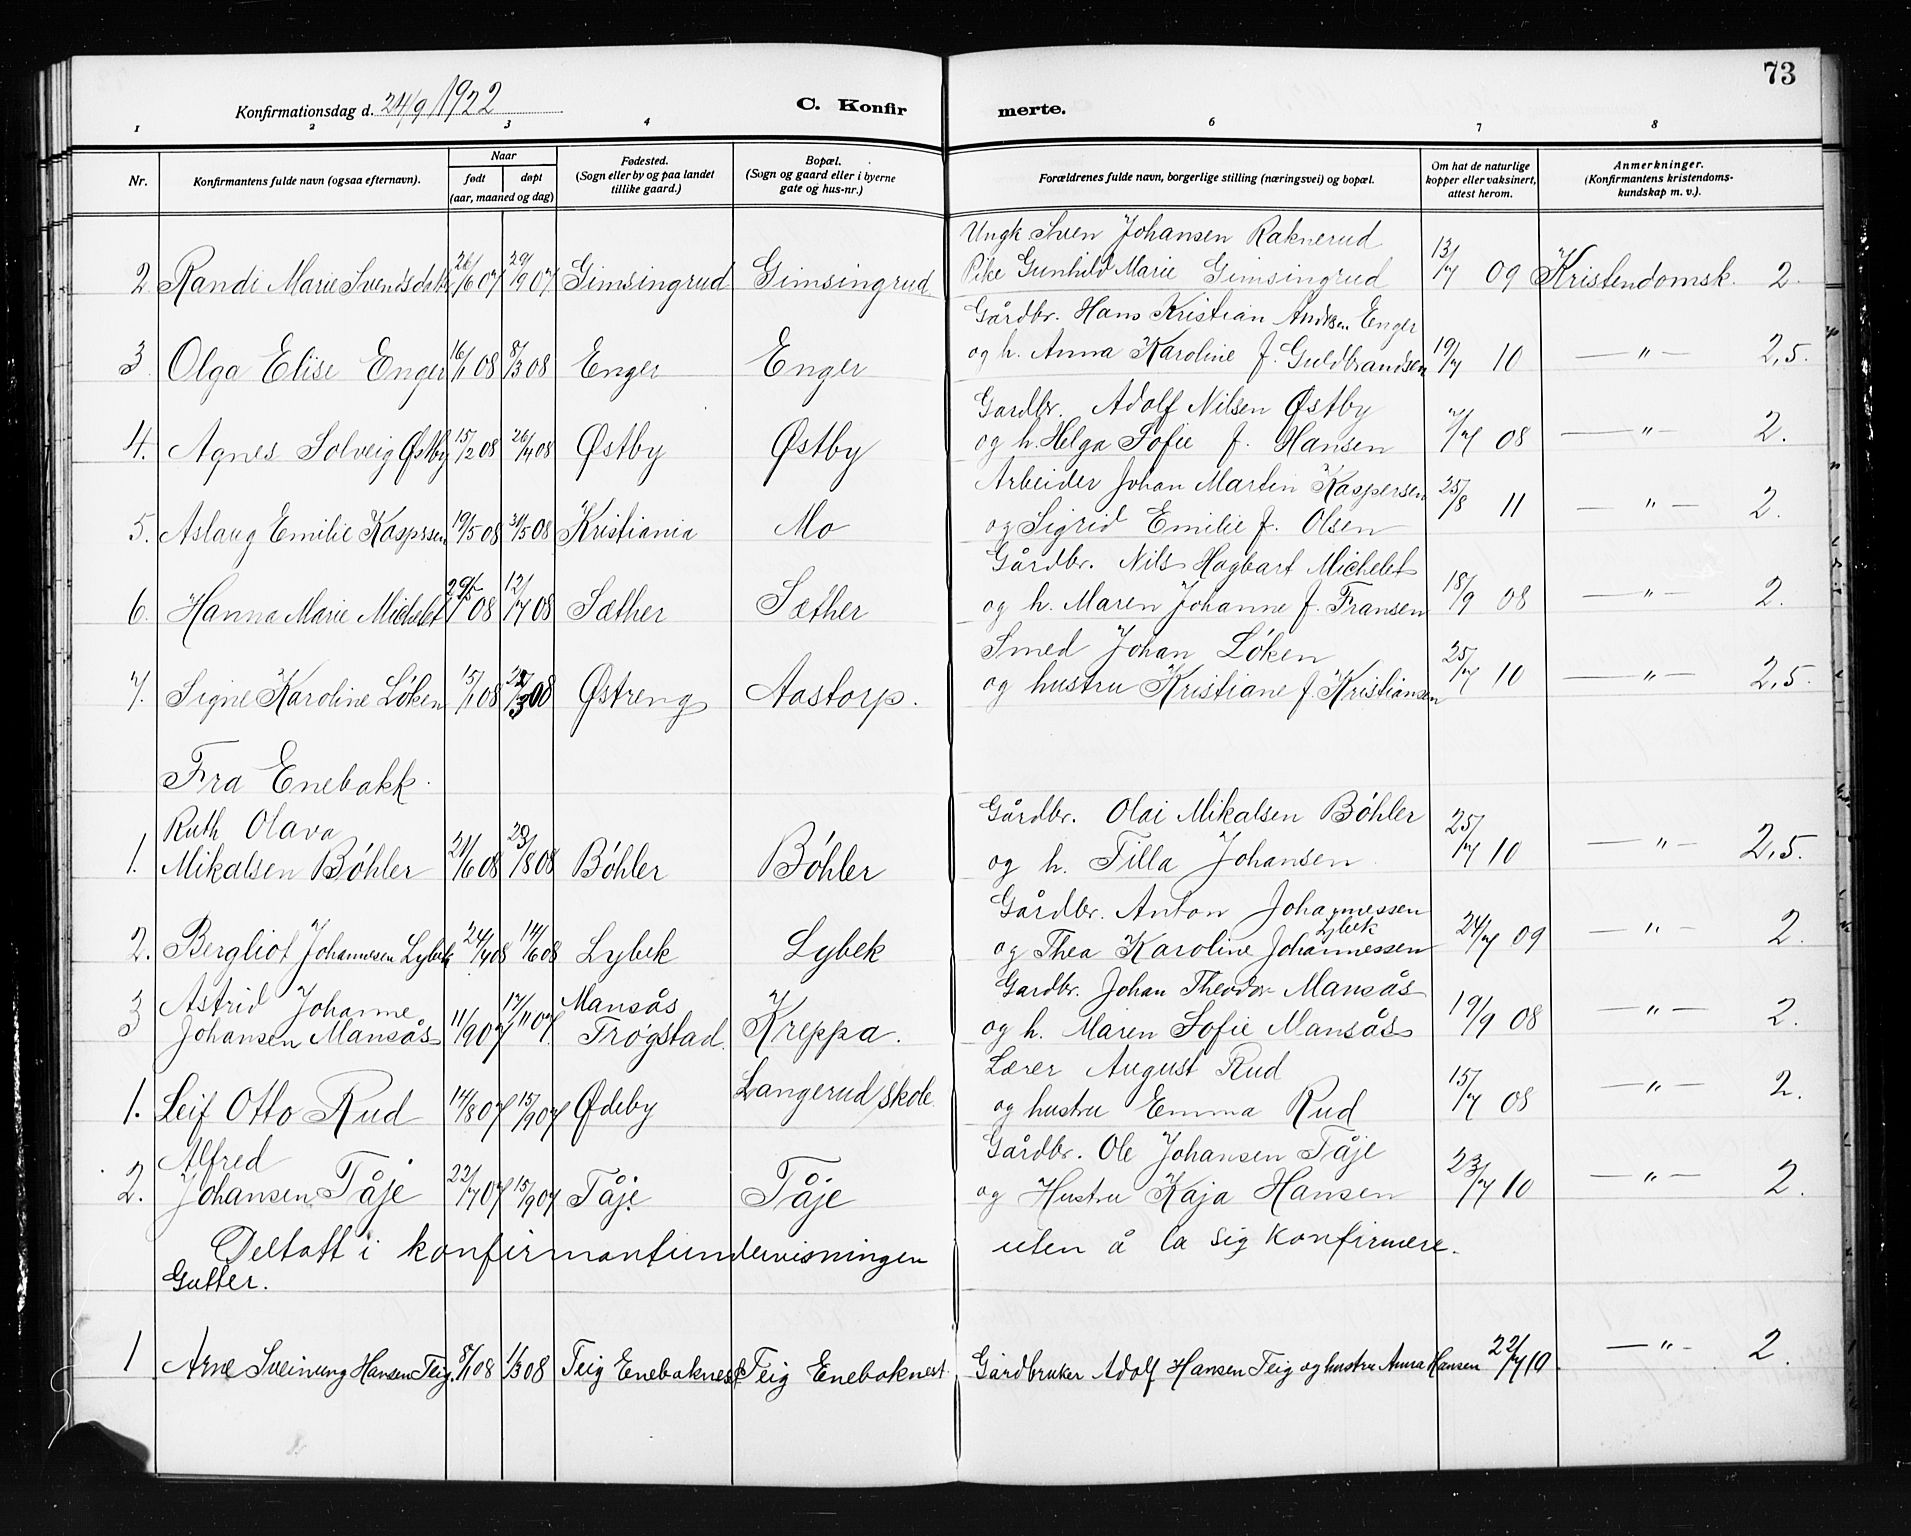 73
Konfirmationsdag d. 24/9 1922
C. Konfir merte.
1 2 3 4 6 7 8
Nr.
Konfirmantens fulde navn (ogsaa efternavn).
Naar
født døpt
(aar, maaned og dag)
Fødested.
(Sogn eller by og paa landet
tillike gaard.)
Bopæl.
(Sogn og gaard eller i byerne
gate og hus-nr.)
Forældrenes fulde navn, borgerlige stilling (næringsvei) og bopæl.
Om hat de naturlige
kopper eller vaksinert,
attest herom.
Anmerkninger.
(Konfirmantens kristendoms-
kundskap m. v.).
Ungk Sven Johansen Raknerud
2 Randi Marie Svendsdatt 26/6 07 29/9 07 Gimsingrud Gimsingrud Pike Gunhild Marie Gimsingrud 13/7 09 Kristendomsk. 2.
Gårdbr. Hans Kristian Andrsen Enger
3 Olga Elise Enger 16/1 08 8/3 08 Enger Enger og h. Anna Karoline f. Guldbrandsen 19/7 10 — " — 2,5.
Gardbr. Adolf Nilsen Østby
4. Agnes Solveig Østby 15/2 08 26/4 08 Østby Østby og h. Helga Sofie f. Hansen /7 08 — " — 2.
Arbeider Johan Martin Kaspersen
5. Aslaug Emilie Kasprsen 19/5 08 31/5 08 Kristiania Mo og Sigrid Emilie f. Olsen 25/8 11 — " — 2.
Gårdbr. Nils Hagbart Michelet
6. Hanna Marie Michelet 08 12/7 08 Sæther Sæther og h. Maren Johanne f. Fransen 18/9 08 — " — 2.
Smed Johan Løken
7. Signe Karoline Løken 15/1 08 /3 08 Østreng Aastorp. og hustru Kristiane f. Kristiansen 25/7 10 — " — 2,5.
Fra Enebakk.
Ruth Olava Gårdbr. Olai Mikalsen Bøhler
1. Mikalsen Bøhler 21/6 08 23/8 08 Bøhler Bøhler og h. Tilla Johansen 25/7 10 — " — 2,5.
Gårdbr. Anton Johannessen
Lybek
2. Bergliot Johannesen Lybek 24/4 08 14/6 08 Lybek Lybek og Thea Karoline Johannessen 24/7 09 — " — 2.
Astrid Johanne Mansås Gardbr. Johan Theodor Mansås
3 Johansen Mansås 11/9 07 17/11 07. Trøgstad. Kreppa. og h. Maren Sofie Mansås 19/9 08 — " — 2.
Lærer August Rud
1. Leif Otto Rud 14/8 07 15/9 07 Ødeby Langerud skole. og hustru Emma Rud 15/7 08 — " — 2.
Alfred Gårdbr. Ole Johansen Tåje
2. Johansen Tåje 22/7 07 15/9 07 Tåje Tåje og Hustru Kaja Hansen 23/7 10 — " — 2.
Deltatt i konfirmantundervisningen uten å la sig konfirmere.
Gutter.
1 Arne Sveinung Hansen Teig. 8/1 08 1/3 08 Teig Enebaknest Teig Enebaknest Gårdbruker Adolf Hansen Teig og hustru Anna Hansen 22/7 10. — " — 2.